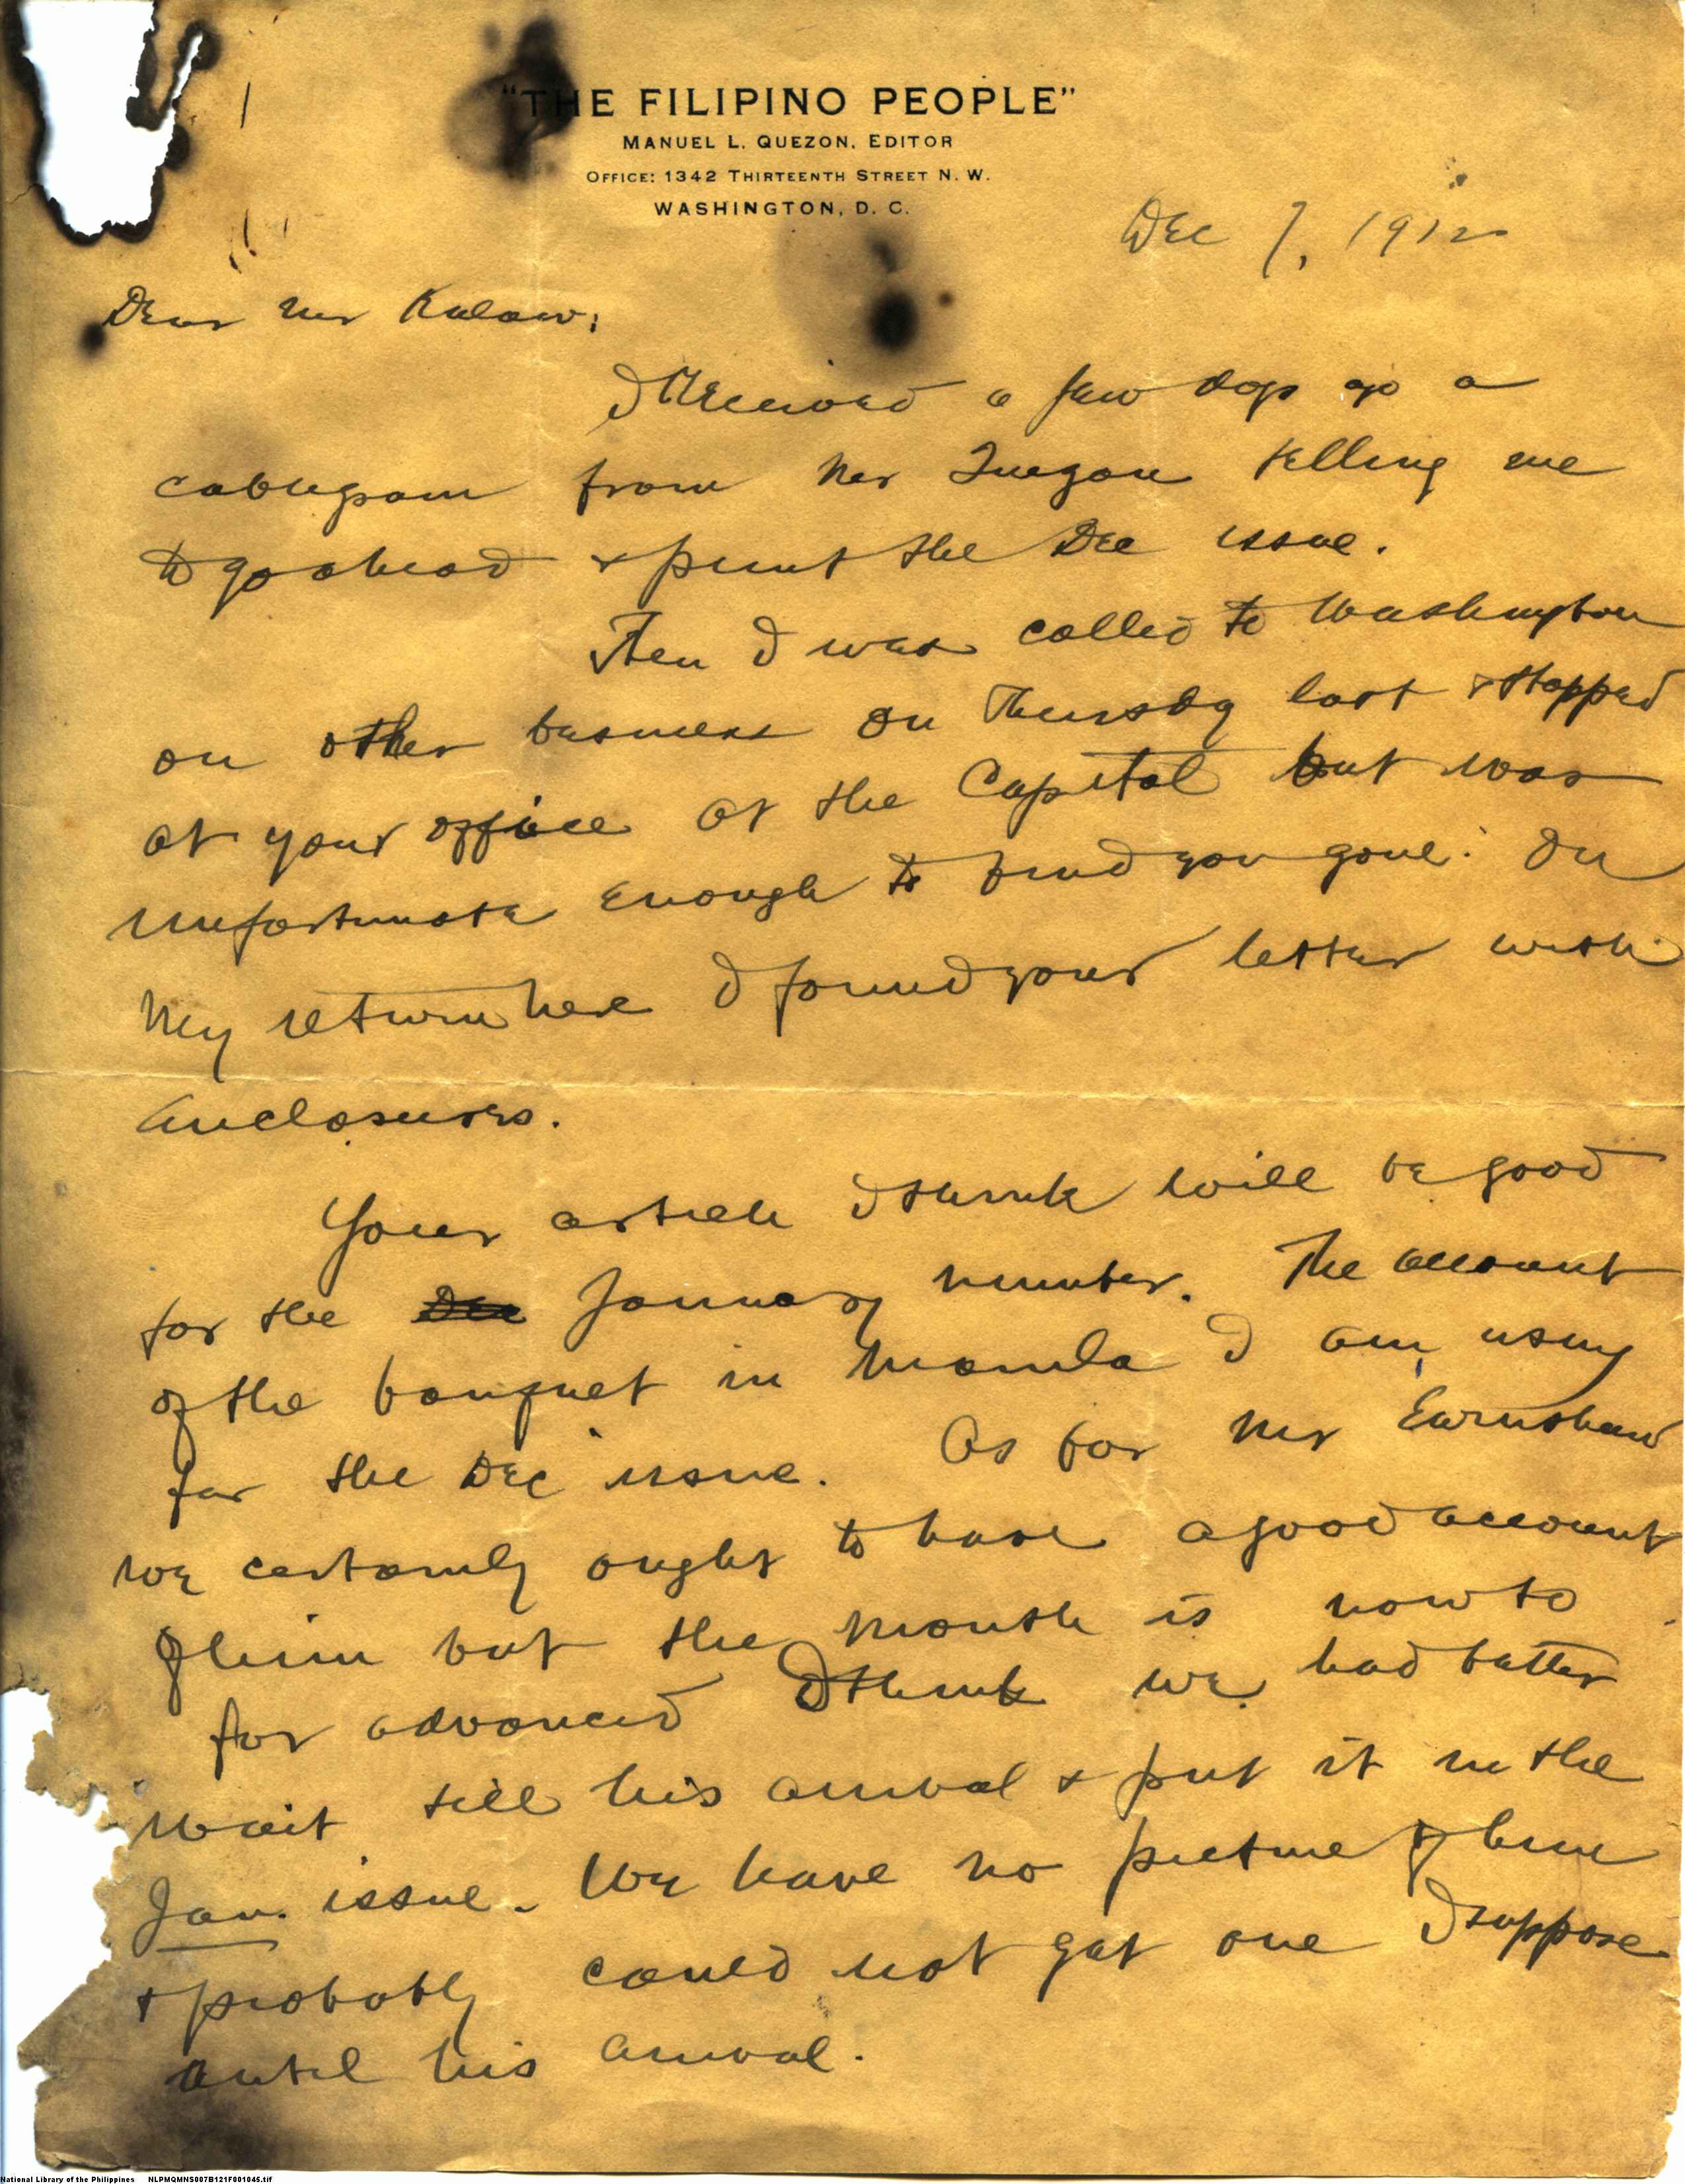 "THE FILIPINO PEOPLE"
MANUEL L. QUEZON, EDITOR
OFFICE: 1342 THIRTEENTH STREET N. W.
WASHINGTON, D. C.
Dec 7, 1912
Dear Mr Kalaw:
I received a few days ago a
cablegram from Mr Quezon telling me
to go ahead & print the Dec issue.
Then I was called to Washington
on other business on Thursday last & stopped
at your office at the Capitol but was
unfortunate enough to find you gone. On
my return here I found your letter with
enclosures.
Your article I think will be good
for the Dec January number. The account
of the banquet in Manila I am using
for the Dec issue. As for Mr Earnshaw
we certainly ought to have a good account
of him but the month is now to
far advanced I think we had better
wait till his arrival & put it in the
Jan. issue. We have no picture of him
& probably could not get one I suppose
until his arrival.
National Library of the Philippines NLPMQMNS007B121F001045.tif